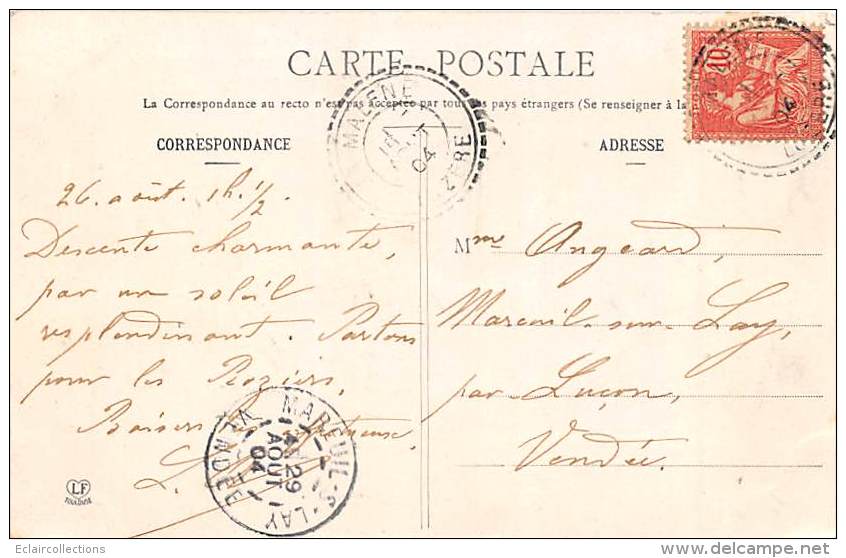 CARTE POSTALE
La Correspondance au recto n'est pas acceptée par tous les pays étrangers (Se renseigner à la
CORRESPONDANCE
ADRESSE
10
MALENE
04
ZERE
26 août. 1h. 1/2.
Descente charmante,
par un soleil
resplendissant. Partons
pour les Roziers,
Baisers
Mme Angeard,
Mareuil-sur-Lay,
par Luçon,
Vendée.
MAREUIL-S-LAY
29
AOUT
04
VENDEE
LF
TOULOUSE
Eclaircollections
delcampe.net